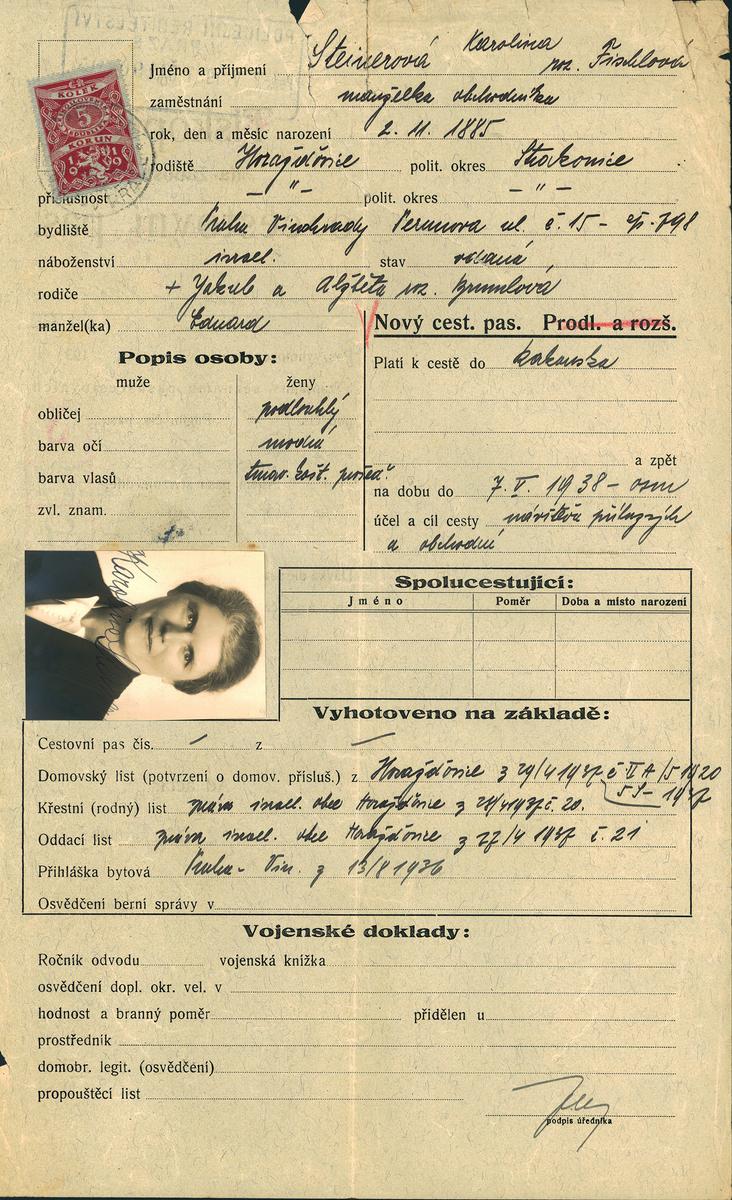 POLICEJNÍ ŘEDITELSTVÍ
Jméno a příjmení Steinerová Karolina roz. Fischlová
zaměstnání manželka obchodníka
ČS.
KOLEK
5
KORUN
1919
rok, den a měsíc narození 2. 11. 1885
rodiště Horažďovice polit. okres Strakonice
příslušnost — " — polit. okres — " —
bydliště Praha Vinohrady Perunova ul. č. 15 - čp. 798
náboženství israel. stav vdaná
rodiče + Jakub a Alžběta roz.
manžel(ka) Eduard
Nový cest. pas. Prodl. a rozš.
Popis osoby:
Platí k cestě do Rakouska
muže ženy
obličej podlouhlý
barva očí modrá
barva vlasů
a zpět
zvl. znam.
na dobu do 7. V. 1938 - osm
účel a cíl cesty návštěva příbuzných
a obchodní
Spolucestující:
Jméno Poměr Doba a místo narození
Vyhotoveno na základě:
Cestovní pas čís. — z —
Domovský list (potvrzení o domov. přísluš.) z Horažďovice z 29/4 1937 č II A /5 1920
1937
Křestní (rodný) list israel. obce Horažďovice z 28/4 1937 č. 20.
Oddací list israel. obce Horažďovice z 27/4 1937 č. 21
Přihláška bytová Praha - Vin. z 13/8 1936
Osvědčení berní správy v
Vojenské doklady:
Ročník odvodu vojenská knížka
osvědčení dopl. okr. vel. v
hodnost a branný poměr přidělen u
prostředník
domobr. legit. (osvědčení)
propouštěcí list
podpis úředníka